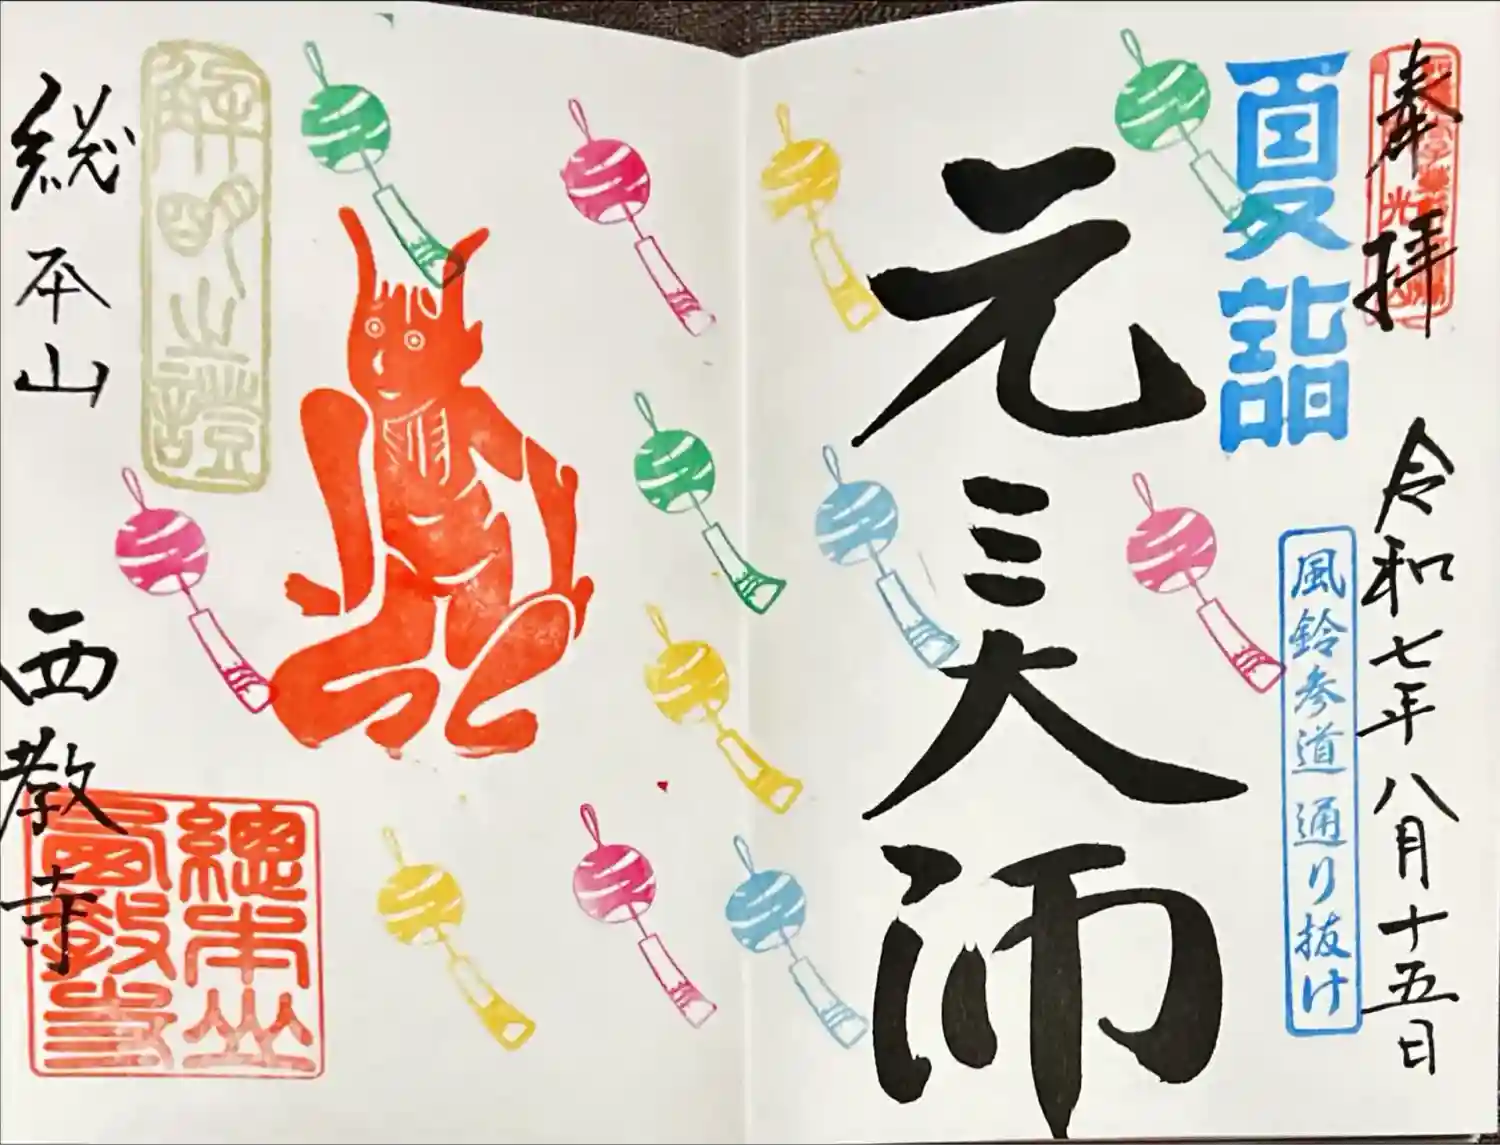 奉拝
令和七年八月十五日
夏詣
風鈴参道 通り抜け
元三大師
總本山西教寺
総本山 西教寺